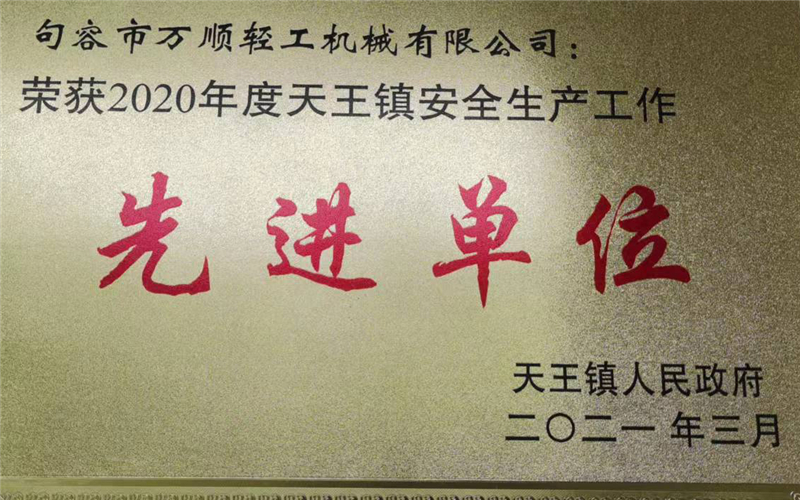 句容市万顺轻工机械有限公司：
荣获2020年度天王镇安全生产工作
先进单位
天王镇人民政府
二〇二一年三月